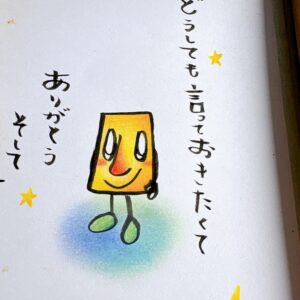 どうしても言っておきたくて
ありがとう
そして